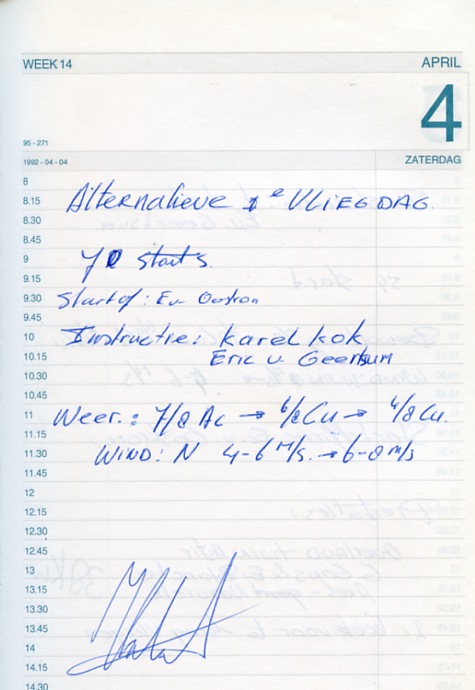 WEEK 14
APRIL
4
95 - 271
1992 - 04 - 04
ZATERDAG
8
8.15 Alternatieve 1e VLIEGDAG
8.30
8.45
9 starts.
9.15
9.30 Startof: Ev
9.45
10 Instructie: Karel Kok
10.15 Eric v. Geerkum
10.30
10.45
11 Weer.: 7/8 Ac → 6/8 Cu → 4/8 Cu.
11.15
11.30 WIND: N 4-6 M/S. → 6-8 m/s
11.45
12
12.15
12.30
12.45
13
13.15
13.30
13.45
14
14.15
14.30